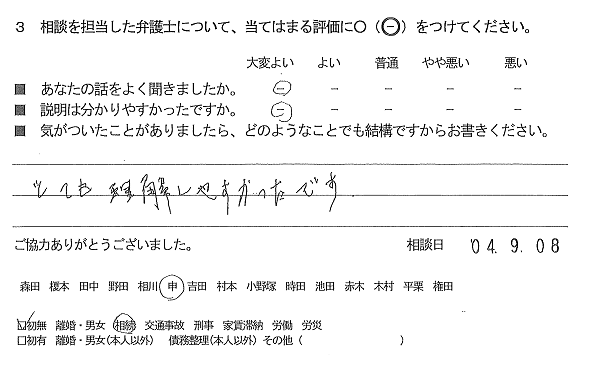 3 相談を担当した弁護士について、当てはまる評価に○(㊀)をつけてください。
大変よい よい 普通 やや悪い 悪い
■ あなたの話をよく聞きましたか。 － － － － －
■ 説明は分かりやすかったですか。 － － － － －
■ 気がついたことがありましたら、どのようなことでも結構ですからお書きください。
とても理解しやすかったです
ご協力ありがとうございました。 相談日 '04.9.08
森田 榎本 田中 野田 相川 申 吉田 村本 小野塚 時田 池田 赤木 木村 平栗 権田
☑初無 離婚・男女 相続 交通事故 刑事 家賃滞納 労働 労災
□初有 離婚・男女(本人以外) 債務整理(本人以外) その他 ( )